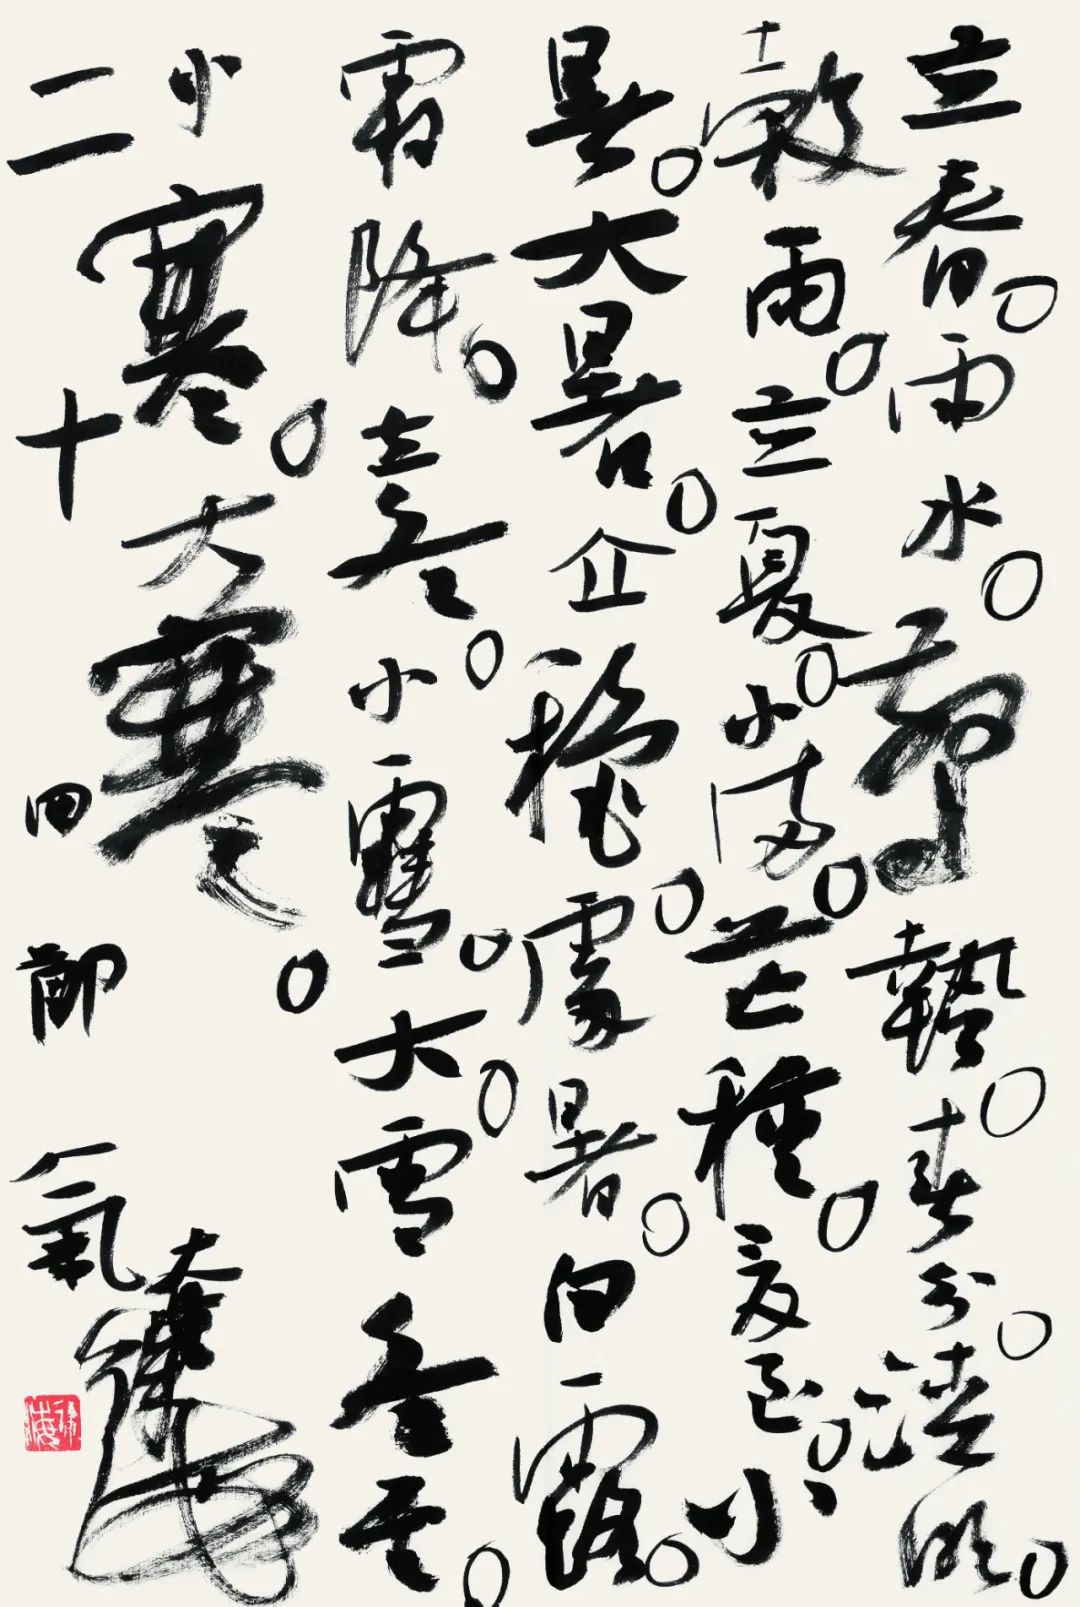 立春。雨水。驚蟄。春分。清明。
穀雨。立夏。小满。芒種。夏至。小
暑。大暑。立穐。處暑。白露。
霜降。立冬。小雪。大雪。冬至。
小寒。大寒。
二十四節氣